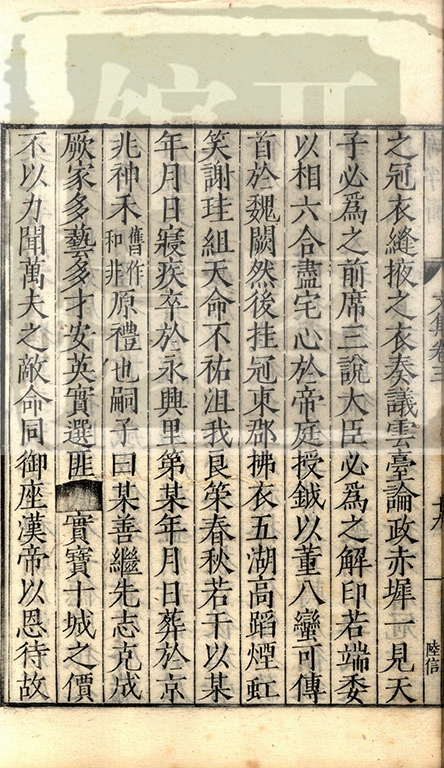 之冠衣縫掖之衣奏議雲臺論政赤墀一見天
子必爲之前席三說大臣必爲之解印若端委
以相六合盡宅心於帝庭授鉞以董八蠻可傳
首於魏闕然後挂冠東郡拂衣五湖高蹈煙虹
笑謝珪組天命不祐沮我良榮春秋若干以某
年月日寢疾卒於永興里第某年月日葬於京
兆神禾舊作和非原禮也嗣子曰某善繼先志克成
厥家多藝多才安英實選匪 實寶十城之價
不以力聞萬夫之敵命同御座漢帝以恩待故
陸信